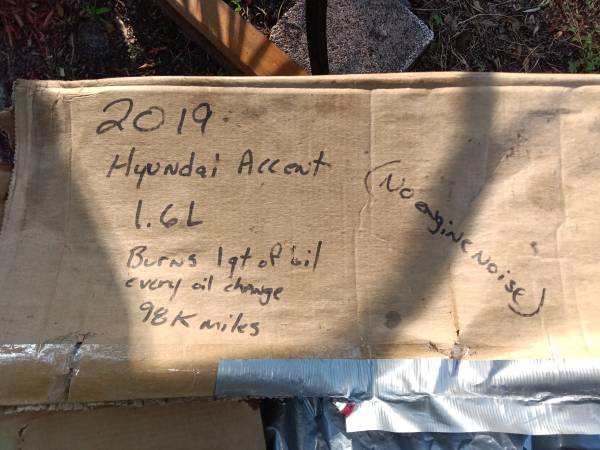 2019
Hyundai Accent
1.6L
Burns 1 qt of oil
every oil change
98K miles
(No engine noise)